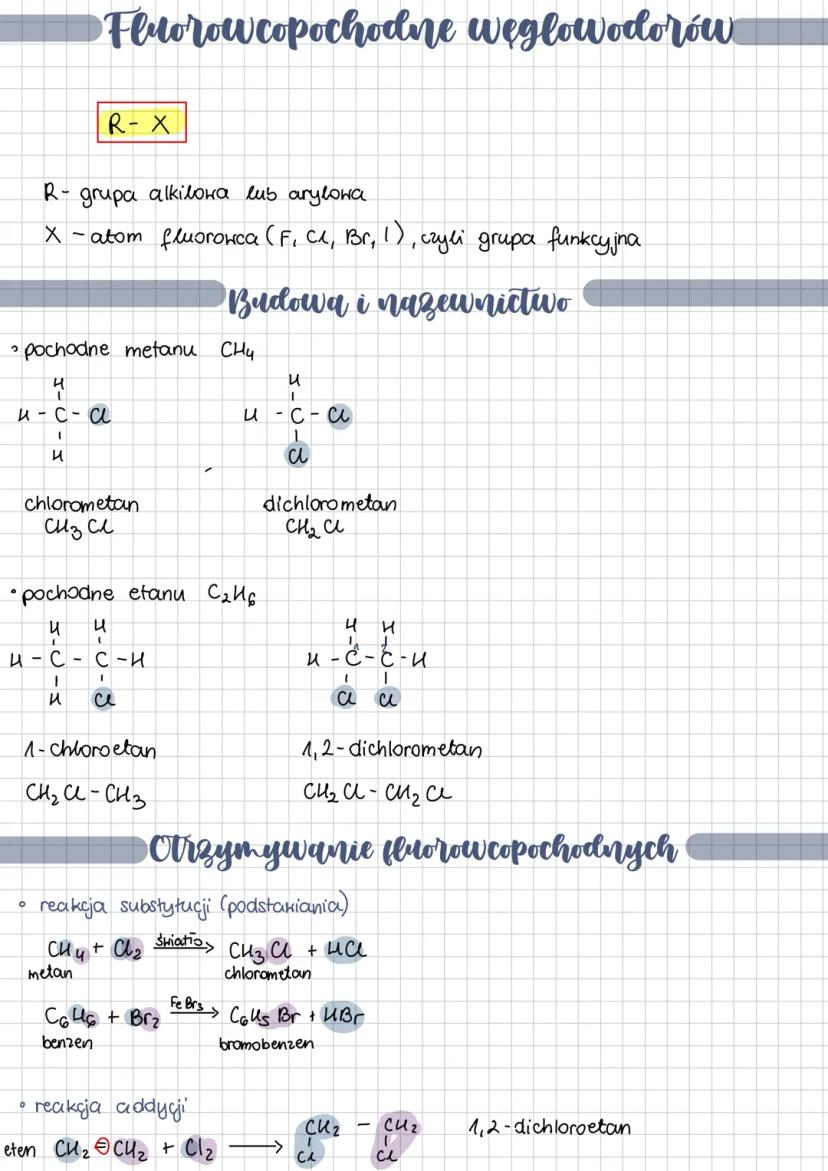 Fluorowcopochodne węglowodorów
R - X
R - grupa alkilowa lub arylowa
X - atom fluorowca (F, Cl, Br, I), czyli grupa funkcyjna
Budowa i nazewnictwo
• pochodne metanu CH₄
H H
H - C - Cl H - C - Cl
H Cl
chlorometan dichlorometan
CH₃Cl CH₂Cl
• pochodne etanu C₂H₆
H H H H
H - C - C - H H - C¹ - C² - H
H Cl Cl Cl
1-chloroetan 1,2-dichlorometan
CH₂Cl - CH₃ CH₂Cl - CH₂Cl
Otrzymywanie fluorowcopochodnych
• reakcja substytucji (podstawiania)
CH₄ + Cl₂ światło→ CH₃Cl + HCl
metan chlorometan
C₆H₆ + Br₂ FeBr₃→ C₆H₅Br + HBr
benzen bromobenzen
• reakcja addycji
eten CH₂ = CH₂ + Cl₂ → CH₂ - CH₂ 1,2-dichloroetan
Cl Cl